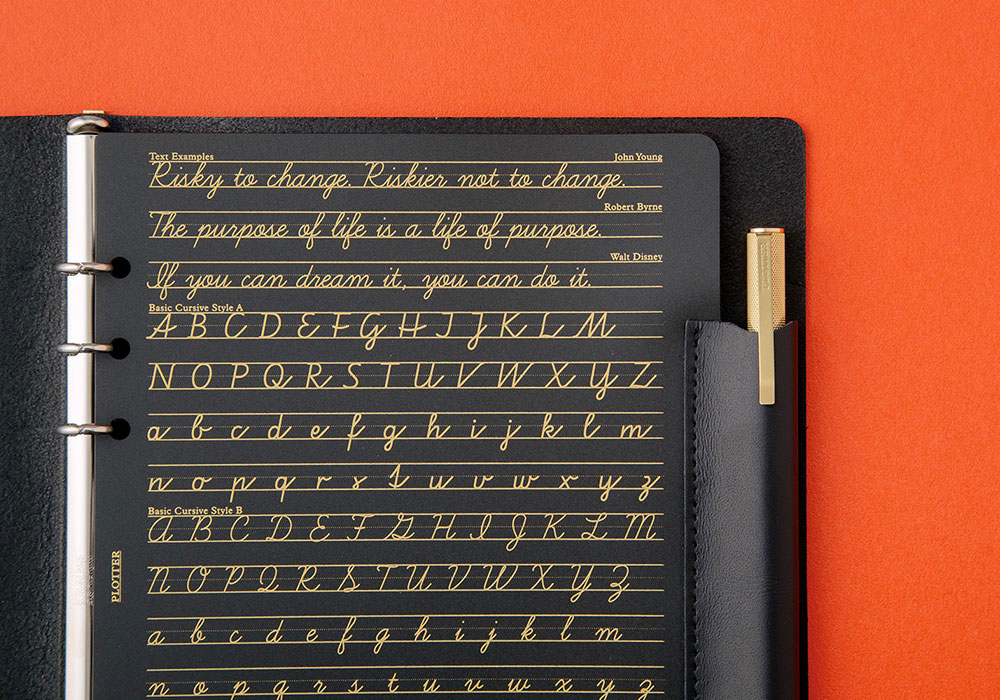 Text Examples John Young
Risky to change. Riskier not to change.
Robert Byrne
The purpose of life is a life of purpose.
Walt Disney
If you can dream it, you can do it.
Basic Cursive Style A
A B C D E F G H I J K L M
N O P Q R S T U V W X Y Z
a b c d e f g h i j k l m
n o p q r s t u v w x y z
Basic Cursive Style B
A B C D E F G H I J K L M
N O P Q R S T U V W X Y Z
a b c d e f g h i j k l m
n o p q r s t u v w x y z
PLOTTER